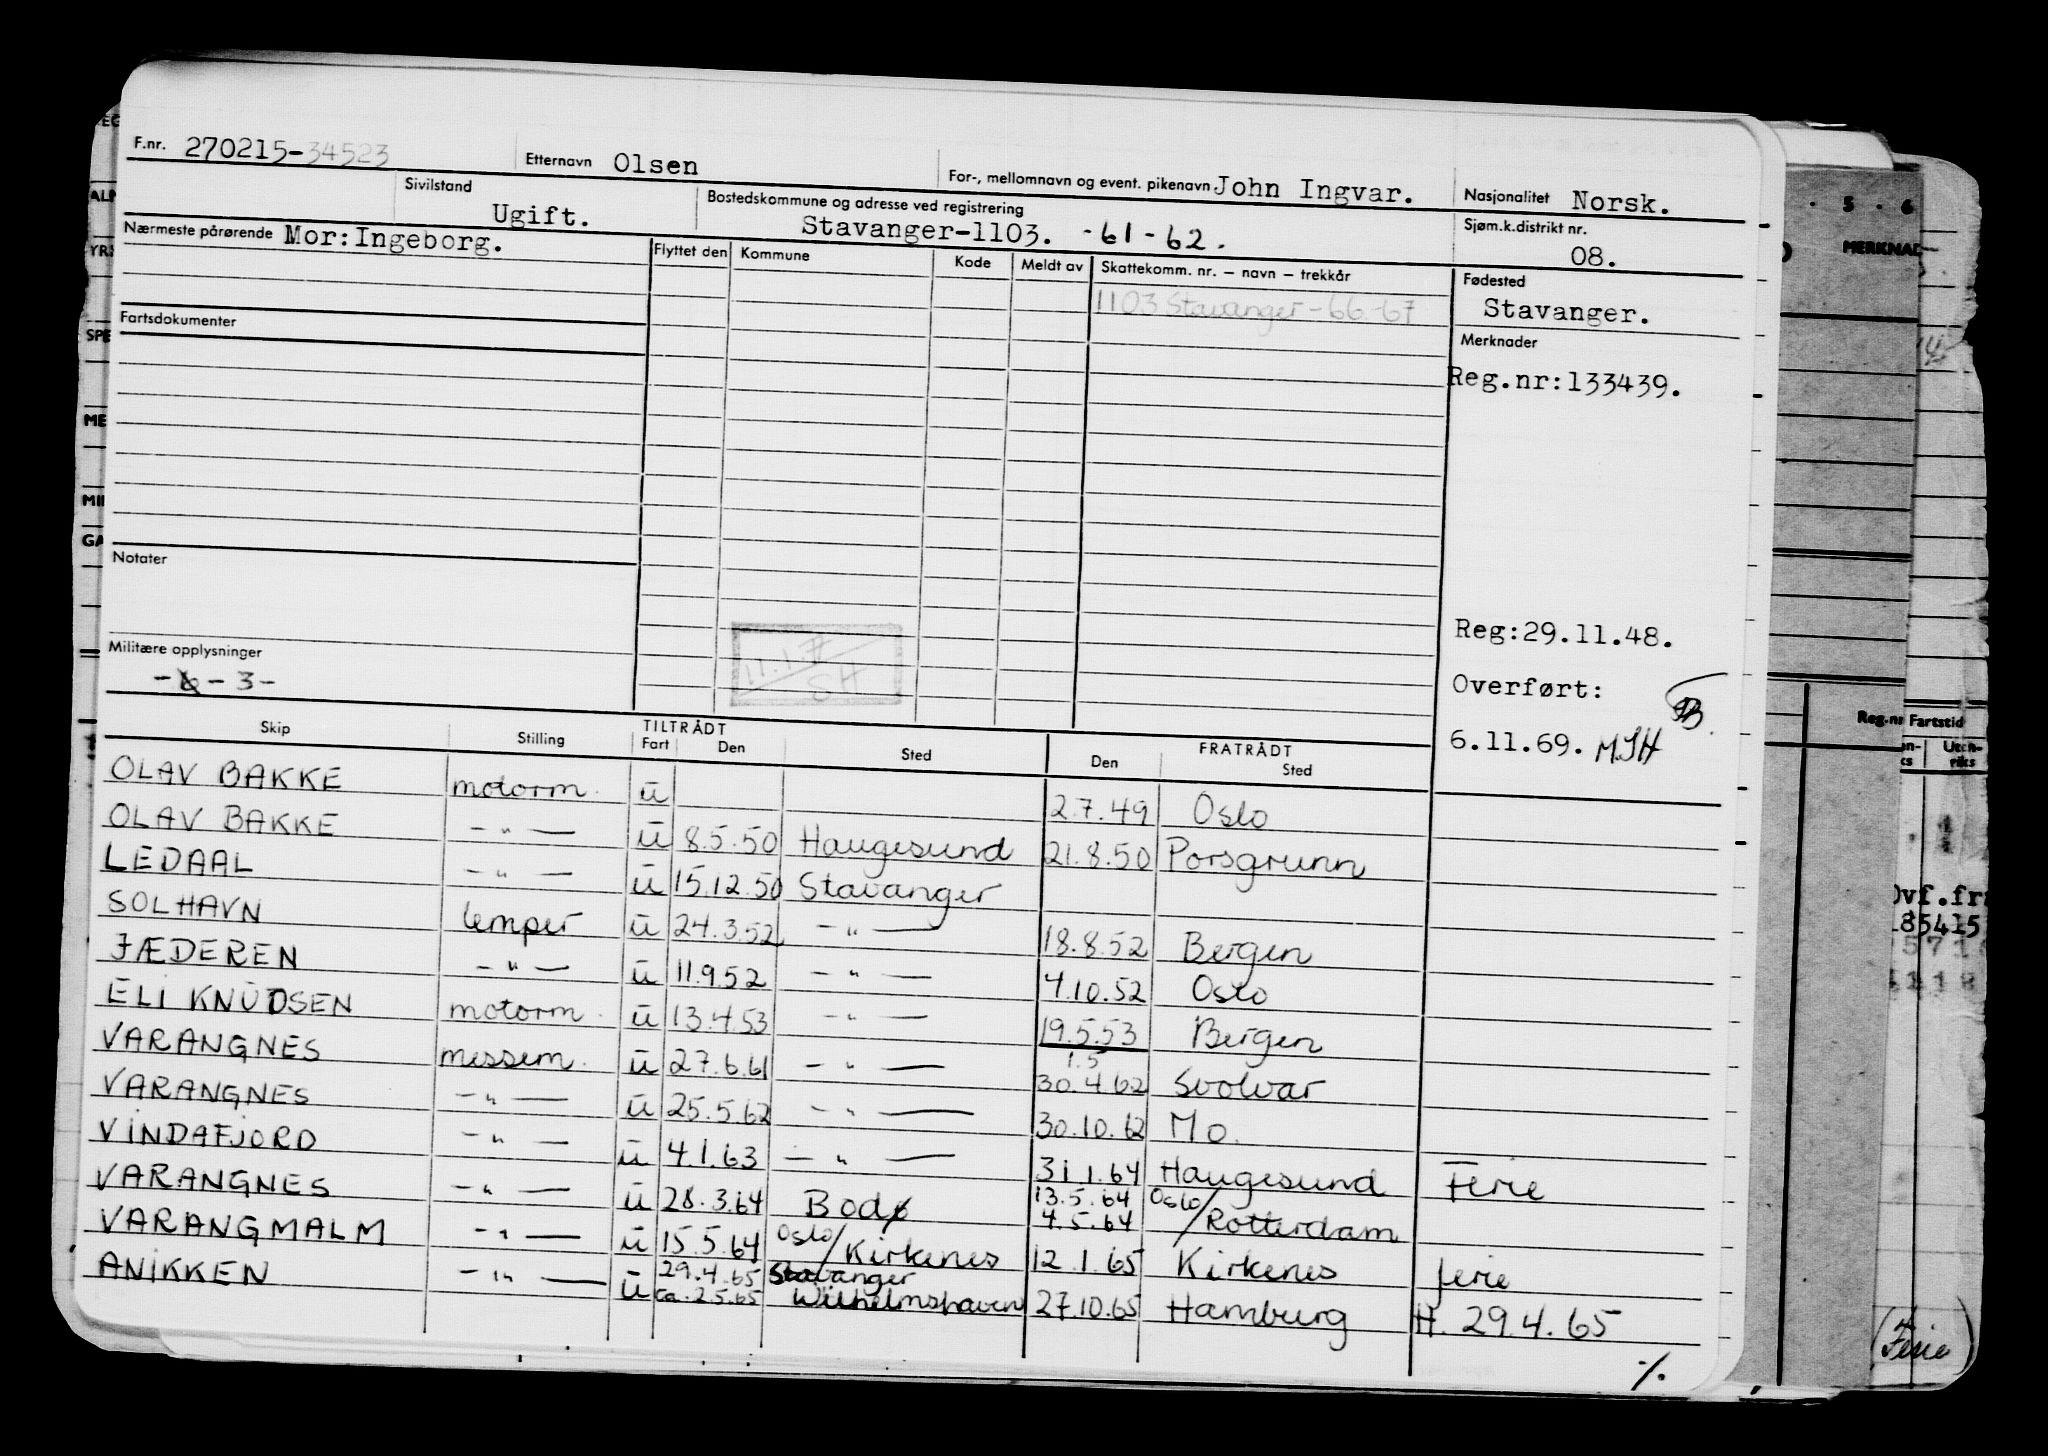 F.nr. 270215-34523 Etternavn Olsen For-, mellomnavn og event. pikenavn John Ingvar. Nasjonalitet Norsk.
Sivilstand Ugift. Bostedskommune og adresse ved registrering Stavanger-1103. -61-62. Sjøm.k.distrikt nr. 08.
Nærmeste pårørende Mor:Ingeborg. Flyttet den Kommune Kode Meldt av Skattekomm. nr. – navn – trekkår Fødested
1103 Stavanger-66-67 Stavanger.
Fartsdokumenter Merknader
Reg.nr:133439.
Notater
11.1.
SH
Reg:29.11.48.
Militære opplysninger
- 3 -
Overført:
6.11.69. MJH
Skip Stilling TILTRÅDT Fart Den Sted FRATRÅDT Den Sted
OLAV BAKKE motorm. ū 2.7.49 Oslo
OLAV BAKKE -"- ū 8.5.50 Haugesund 21.8.50 Porsgrunn
LEDAAL -"- ū 15.12.50 Stavanger
SOLHAVN lemper ū 24.3.52 -"- 18.8.52 Bergen
JÆDEREN -"- ū 11.9.52 -"- 4.10.52 Oslo
ELI KNUDSEN motorm. ū 13.4.53 -"- 19.5.53 Bergen
VARANGNES messem. ū 27.6.61 -"- 1.5 30.4.62 Svolvær
VARANGNES -"- ū 25.5.62 -"- 30.10.62 Mo.
VINDAFJORD -"- ū 4.1.63 -"- 31.1.64 Haugesund Ferie
VARANGNES -"- ū 28.3.64 Bodø 13.5.64 4.5.64 Oslo/Rotterdam
VARANGMALM -"- ū 15.5.64 Oslo/Kirkenes 12.1.65 Kirkenes ferie
ANIKKEN -"- ū 29.4.65 ca. 2.5.65 Stavanger Wilhelmshaven 27.10.65 Hamburg H. 29.4.65
./.
. 5 . 6
MERKNAD
Reg.nr Fartstid
Uten-
riks
Ovf.fr
185415
(Ferie)